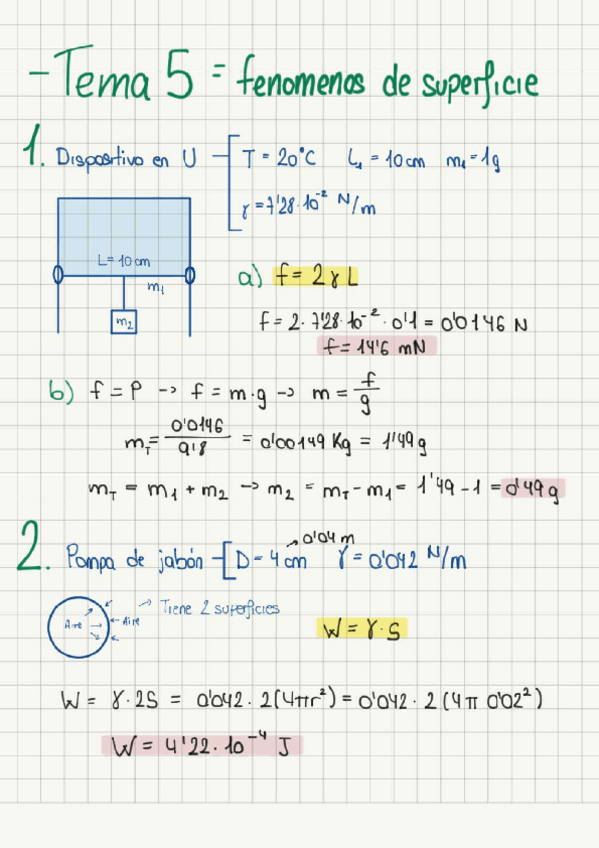 - Tema 5 = fenomenos de superficie
1. Dispositivo en U T = 20°C L₁ = 10 cm m₁ = 1g
γ = 7'28·10⁻² N/m
L = 10 cm
m₁
m₂
a) f = 2γL
f = 2·7'28·10⁻²·0'1 = 0'0146 N
f = 14'6 mN
b) f = P -> f = m·g -> m = f/g
m_T = 0'0146/9'8 = 0'00149 Kg = 1'49 g
m_T = m₁ + m₂ -> m₂ = m_T - m₁ = 1'49 - 1 = 0'49 g
2. Pompa de jabón [D - 4 cm -> 0'04 m γ = 0'042 N/m
Aire Aire -> Tiene 2 superficies
W = γ·S
W = γ·2S = 0'042·2(4πr²) = 0'042·2(4π 0'02²)
W = 4'22·10⁻⁴ J